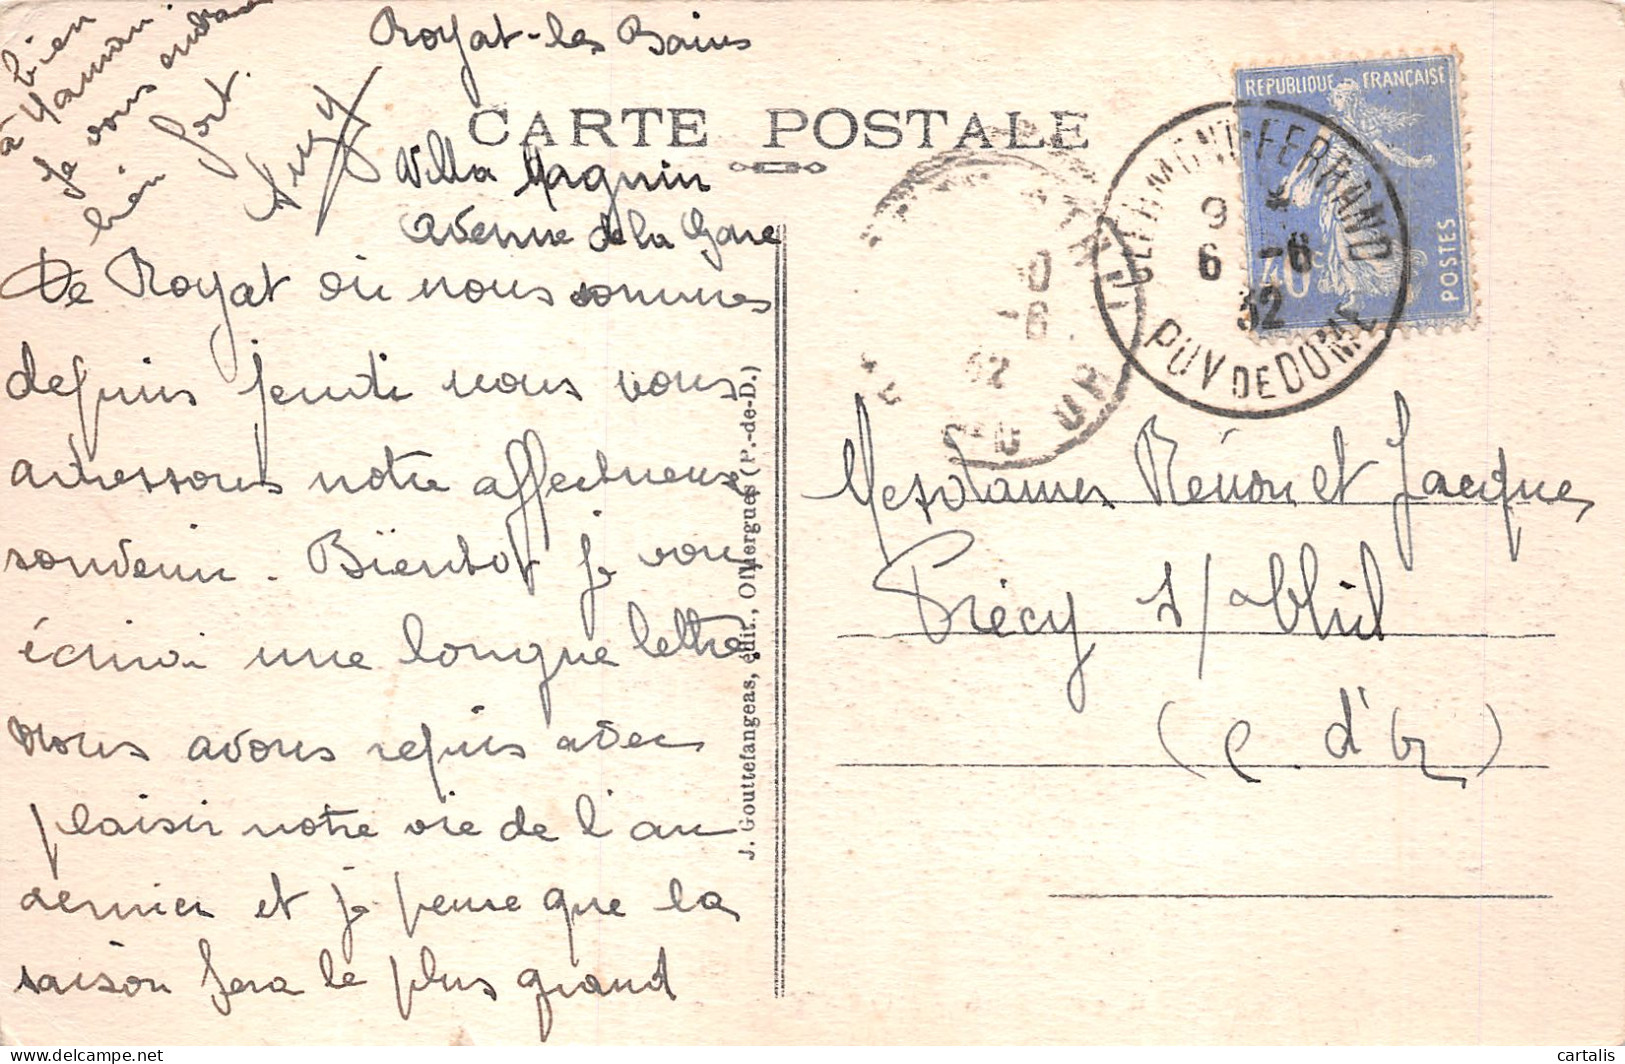 Royat-les Bains
CARTE POSTALE
Villa Magnin
Avenue de la Gare
De Royat où nous sommes
depuis jeudi nous vous
adressons notre affectueux
souvenir. Bientôt je vous
écrirai une longue lettre,
nous avons repris avec
plaisir notre vie de l'an
dernier et je pense que la
saison fera le plus grand
bien
à Maman.
Je vous embrasse
bien fort.
Suzy
J. Gouttefangeas, édit., Olliergues (P.-de-D.)
REPUBLIQUE FRANÇAISE
POSTES
40c
CLERMONT-FERRAND
6 -6
32
PUY DE DOME
Mesdames Rénon et Jacques
Précy s/
(C. d'Or)
cartalis
delcampe.net